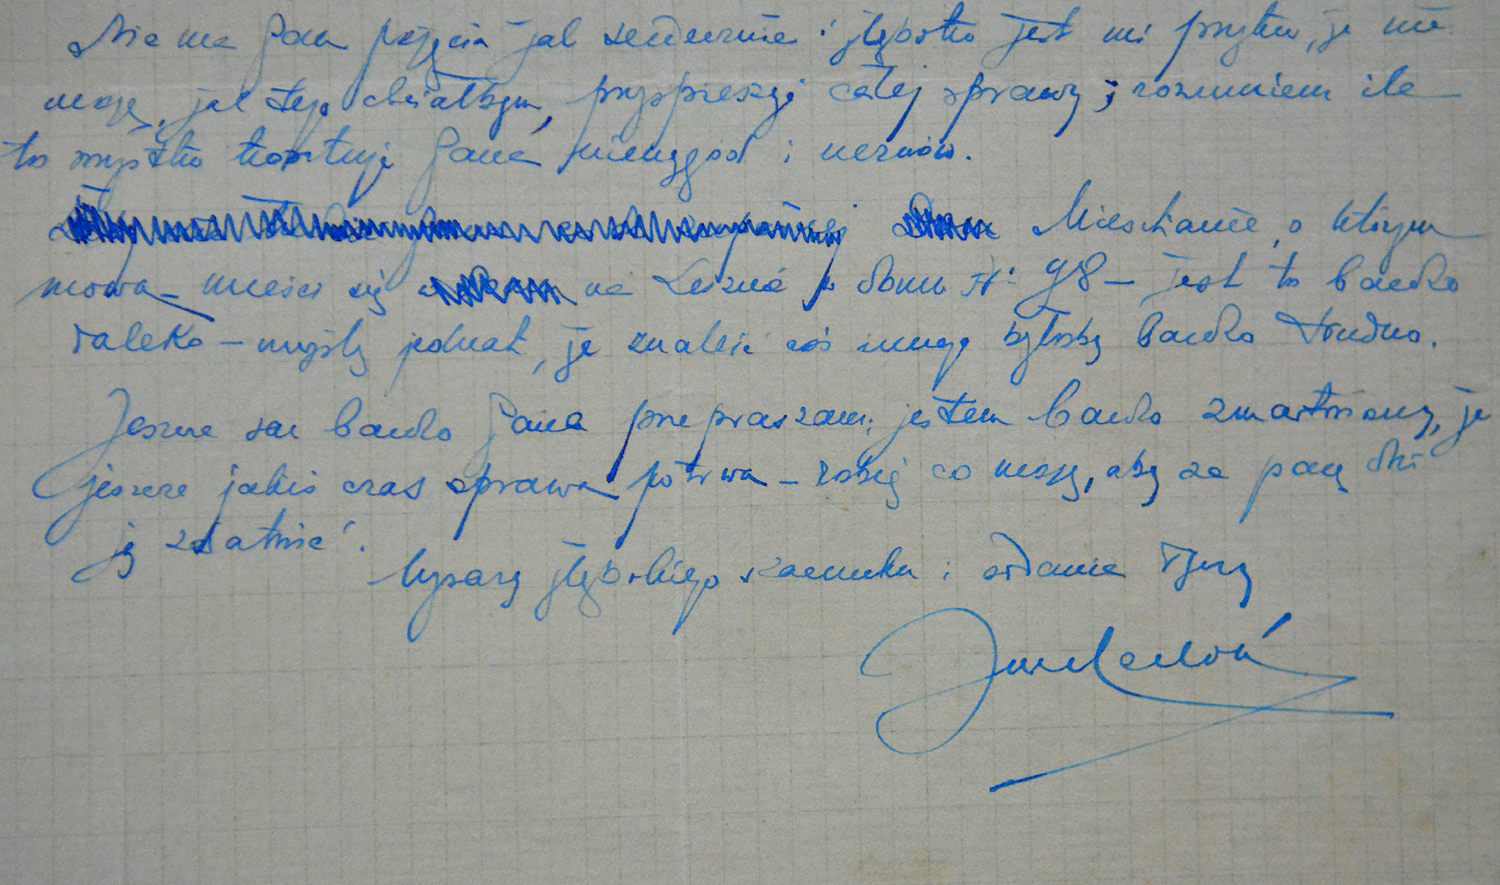 Nie ma Pan pojęcia jak serdecznie i głęboko jest mi przykro, że nie
mogę, jak tego chciałbym, przyspieszyć całej sprawy; rozumiem ile
to wszystko kosztuje Pana niewygód i nerwów.
Mieszkanie, o którym
mowa – mieści się na Leszno w domu № 98 – jest to bardzo
daleko – myślę jednak, że znaleźć coś innego byłoby bardzo trudno.
Jeszcze raz bardzo Pana przepraszam; jestem bardzo zmartwiony, że
jeszcze jakiś czas sprawa potrwa – robię co mogę, aby za parę dni
ją załatwić.
Wyrazy głębokiego szacunku i oddania łączę